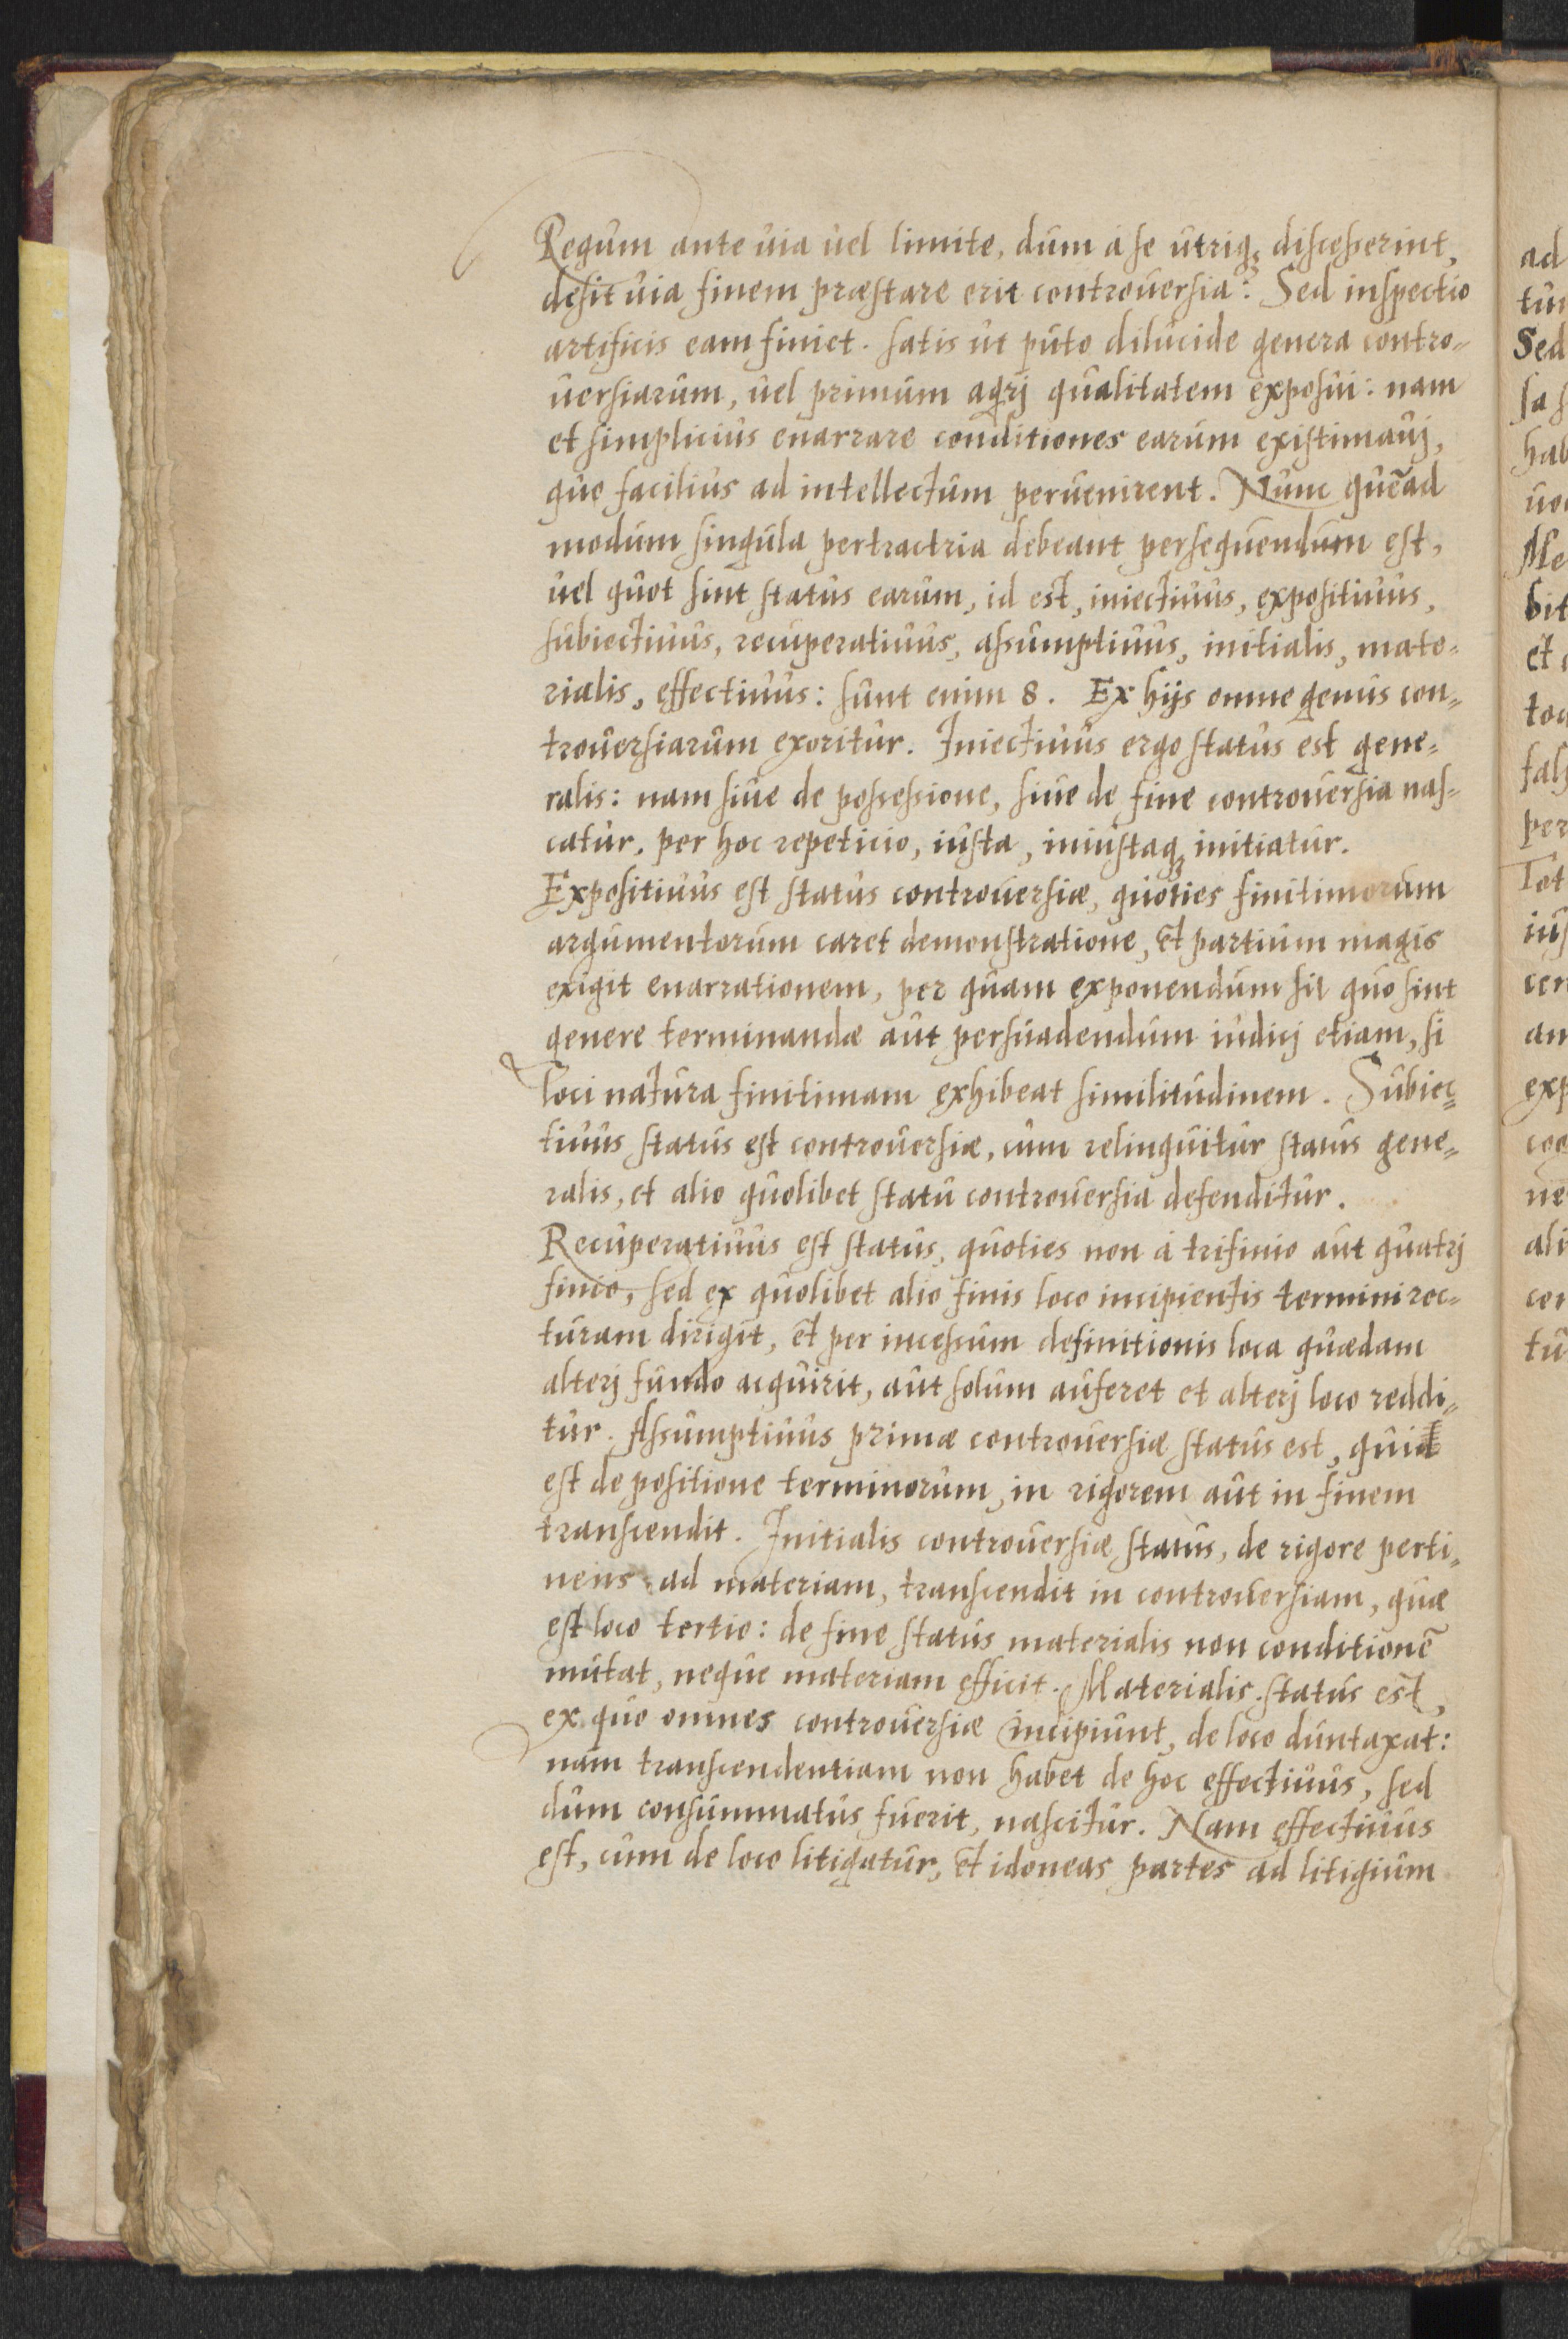 Regum ante uia uel limite, dum à se utriq; discesserint,
desit uia finem præstare erit controuersia: Sed inspectio
artificis eam finiet. Satis ut puto dilucide genera contro-
uersiarum, uel primum agrj qualitatem exposui: nam
et simplicius enarrare conditiones earum existimauj,
quo facilius ad intellectum peruenirent. Nunc quẽad
modum singula pertractria debeant persequendum est,
uel quot sint status earum, id est, iniectiuus, expositiuus,
subiectiuus, recuperatiuus, assumptiuus, initialis, mate-
rialis, effectiuus: sunt enim 8. Ex hijs omne genus con-
trouersiarum exoritur. Iniectiuus ergo status est gene-
ralis: nam siue de possessione, siue de fine controuersia nas-
catur, per hoc repeticio, iusta, iniustaq; initiatur.
Expositiuus est status controuersiæ, quoties finitimorum
argumentorum caret demonstratione, et partium magis
exigit enarrationem, per quam exponendum sit quo sint
genere terminandæ aut persuadendum iudicj etiam, si
loci natura finitimam exhibeat similitudinem. Subiec-
tiuus status est controuersiæ, cum relinquitur status gene-
ralis, et alio quolibet statu controuersia defenditur.
Recuperatiuus est status, quoties non à trifinio aut quatrj
finio, sed ex quolibet alio finis loco incipientis termini rec-
turam dirigit, et per incessum definitionis loca quædam
alterj fundo acquirit, aut solum auferet et alterj loco reddi-
tur. Assumptiuus primæ controuersiæ status est, quia
est de positione terminorum, in rigorem aut in finem
transcendit. Initialis controuersiæ status, de rigore perti-
nens ad materiam, transcendit in controuersiam, quæ
est loco tertio: de fine status materialis non conditionẽ
mutat, neque materiam efficit. Materialis status est,
ex quo omnes controuersiæ incipiunt, de loco duntaxat:
nam transcendentiam non habet de hoc effectiuus, sed
dum consummatus fuerit, nascitur. Nam effectiuus
est, cum de loco litigatur, et idoneas partes ad litigium
ad
Sed
hab
bit
et
per
Tot
cen
an
exp
ne
ali
con
tu